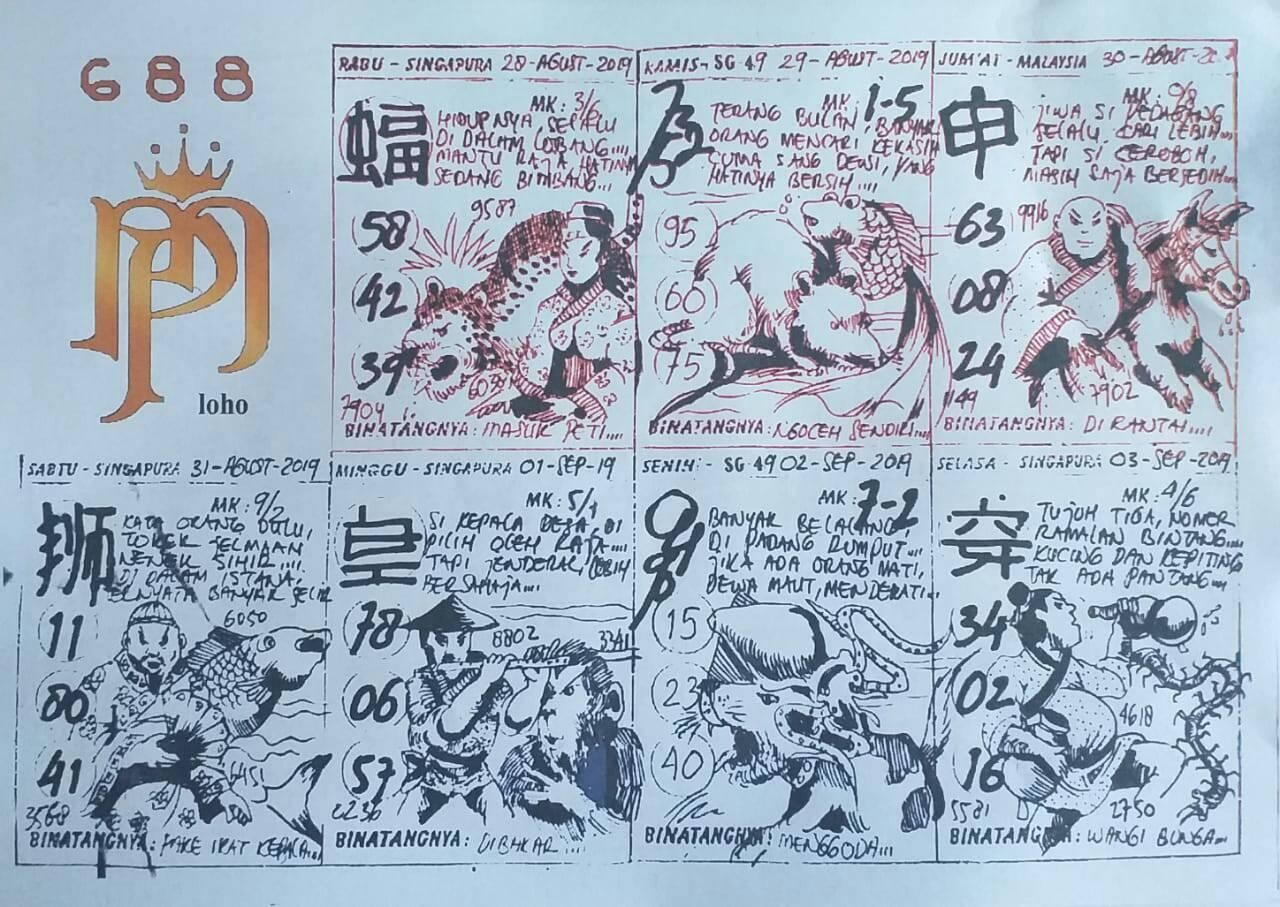 688
PM
loho
RABU - SINGAPURA 28-AGUST-2019
MK: 3/6
蝠
HIDUPNYA SELALU
DI DALAM LOBANG....
MANTU RAJA, HATINYA
SEDANG BIMBANG...
58
9587
42
39
6030
7904
BINATANGNYA: MASUK PETI....
KAMIS - SG 49 29-AGUST-2019
MK: 1-5
TERANG BULAN, BANYAK
ORANG MENCARI KEKASIH
CUMA SANG DEWI, YANG
HATINYA BERSIH....
95
60
75
BINATANGNYA: NGOCEH SENDIRI....
JUM'AT - MALAYSIA 30-AGUST-201
MK: 9/8
申
JIWA SI PEDAGANG
SELALU CARI LEBIH...
TAPI SI CEROBOH,
MASIH SAJA BERSEDIH...
63
9916
08
24
7902
149
BINATANGNYA: DI RANTAI....
SABTU - SINGAPURA 31-AGUST-2019
MK: 9/2
狮
KATA ORANG DULU,
TOKEK JELMAAN
NENEK SIHIR....
DI DALAM ISTANA,
ERNYATA BANYAK SELIR
11
6050
80
41
6451
3568
BINATANGNYA: PAKE IKAT KEPALA...
MINGGU - SINGAPURA 01-SEP-19
MK: 5/1
皇
SI KEPALA DESA, DI
PILIH OLEH RAJA....
TAPI JENDERAL, LEBIH
BERSAHAJA...
78
8802
3341
06
57
2236
BINATANGNYA: DIBAKAR....
SENIN - SG 49 02-SEP-2019
MK: 7-2
BANYAK BELALANG
DI PADANG RUMPUT...
JIKA ADA ORANG MATI,
DEWA MAUT, MENDEKATI...
15
23
40
BINATANGNYA: MENGGODA...
SELASA - SINGAPURA 03-SEP-2019
MK: 4/6
穿
TUJUH TIGA, NOMER
RAMALAN BINTANG....
KUCING DAN KEPITING
TAK ADA PANTANG...
34
02
4618
16
5581
2750
BINATANGNYA: WANGI BUNGA...